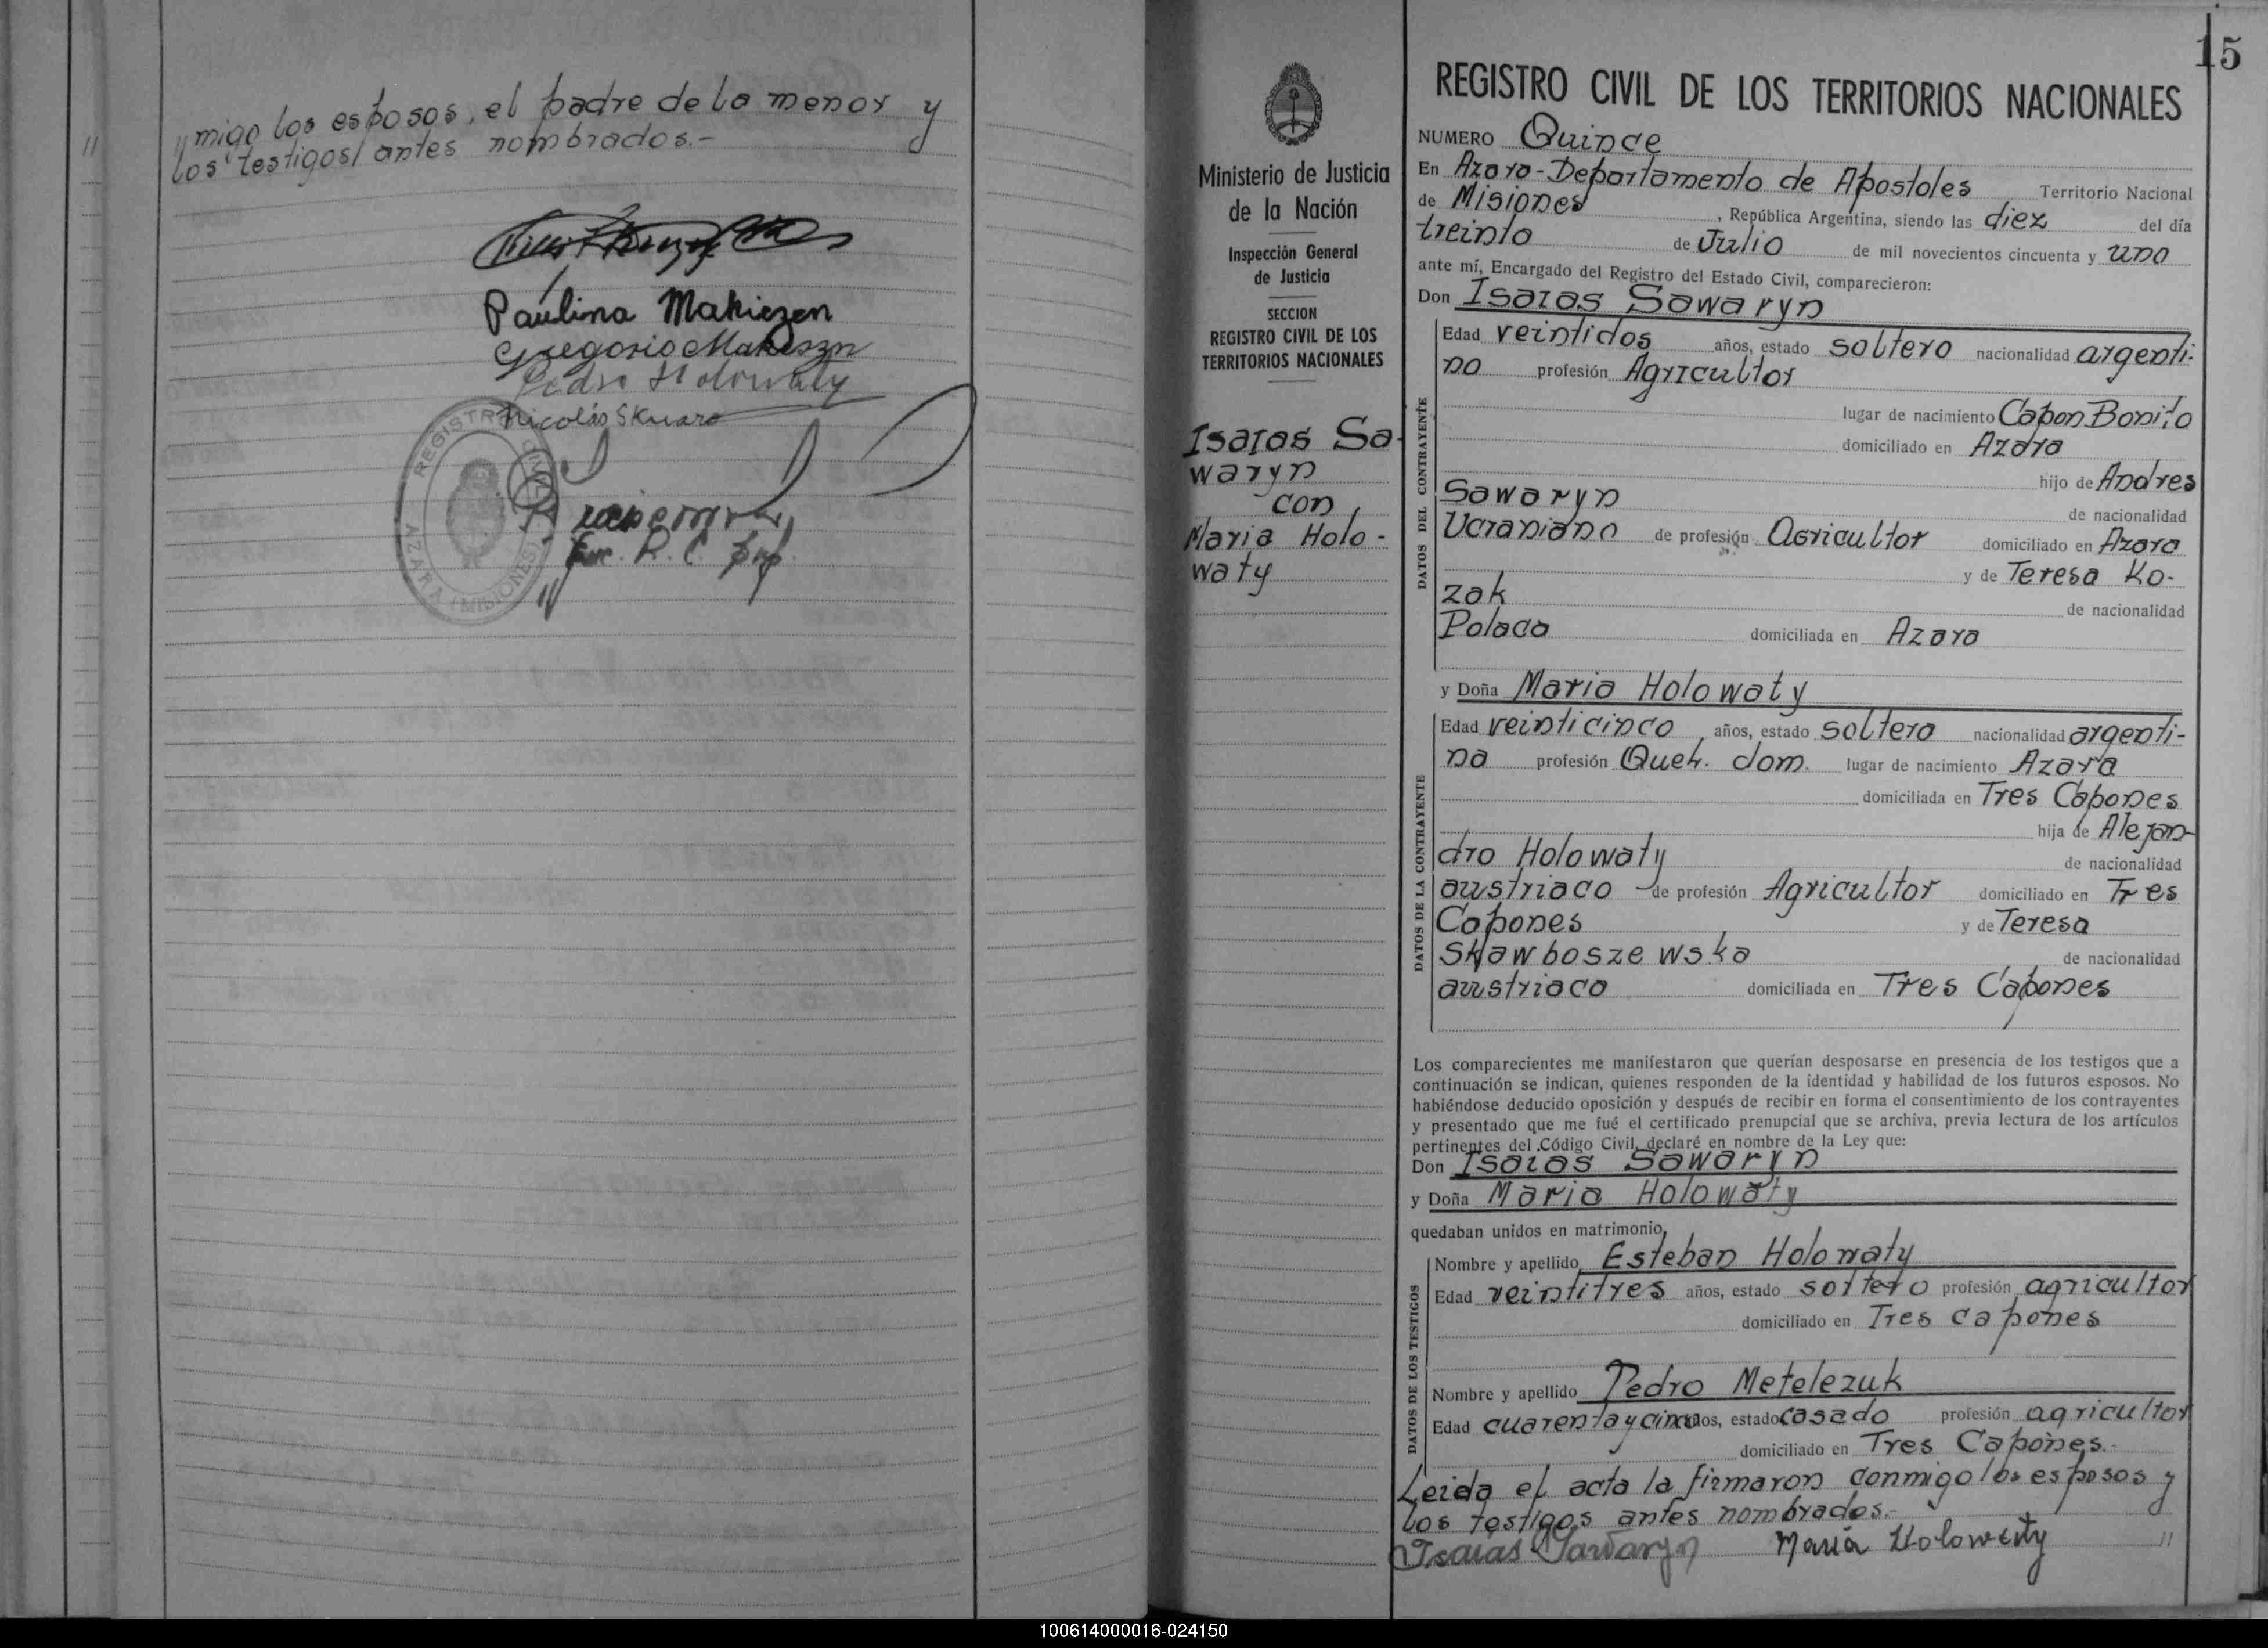 "migo los esposos, el padre de la menor y
los testigos/ antes nombrados.-
Paulina Makiezen
Gregorio Makieszn
Pedro Holowaty
Nicolás Skuaro
REGISTRO CIVIL
AZARA (MISIONES)
Enc. R. C.
15
Ministerio de Justicia
de la Nación
Inspección General
de Justicia
SECCION
REGISTRO CIVIL DE LOS
TERRITORIOS NACIONALES
Isaias Sa-
waryn
con
Maria Holo-
waty
REGISTRO CIVIL DE LOS TERRITORIOS NACIONALES
NUMERO Quince
En Azara-Departamento de Apostoles Territorio Nacional
de Misiones, República Argentina, siendo las diez del día
treinta de Julio de mil novecientos cincuenta y uno
ante mí, Encargado del Registro del Estado Civil, comparecieron:
Don Isaias Sawaryn
DATOS DEL CONTRAYENTE
Edad veintidos años, estado soltero nacionalidad argenti-
no profesión Agricultor
lugar de nacimiento Capon Bonito
domiciliado en Azara
hijo de Andres
Sawaryn de nacionalidad
Ucraniano de profesión Agricultor domiciliado en Azara
y de Teresa Ko-
zak de nacionalidad
Polaca domiciliada en Azara
y Doña Maria Holowaty
DATOS DE LA CONTRAYENTE
Edad veinticinco años, estado soltera nacionalidad argenti-
na profesión Queh. dom. lugar de nacimiento Azara
domiciliada en Tres Capones
hija de Alejan-
dro Holowaty de nacionalidad
austriaco de profesión Agricultor domiciliado en Tres
Capones y de Teresa
Skawboszewska de nacionalidad
austriaca domiciliada en Tres Capones
Los comparecientes me manifestaron que querían desposarse en presencia de los testigos que a
continuación se indican, quienes responden de la identidad y habilidad de los futuros esposos. No
habiéndose deducido oposición y después de recibir en forma el consentimiento de los contrayentes
y presentado que me fué el certificado prenupcial que se archiva, previa lectura de los artículos
pertinentes del Código Civil, declaré en nombre de la Ley que:
Don Isaias Sawaryn
y Doña Maria Holowaty
quedaban unidos en matrimonio,
DATOS DE LOS TESTIGOS
Nombre y apellido Esteban Holowaty
Edad veintitres años, estado soltero profesión agricultor
domiciliado en Tres capones
Nombre y apellido Pedro Metelezuk
Edad cuarenta y cinco años, estado casado profesión agricultor
domiciliado en Tres Capones.-
Leida el acta la firmaron conmigo los esposos y
los testigos antes nombrados.-
Isaias Sawaryn Maria Holowaty "
100614000016-024150